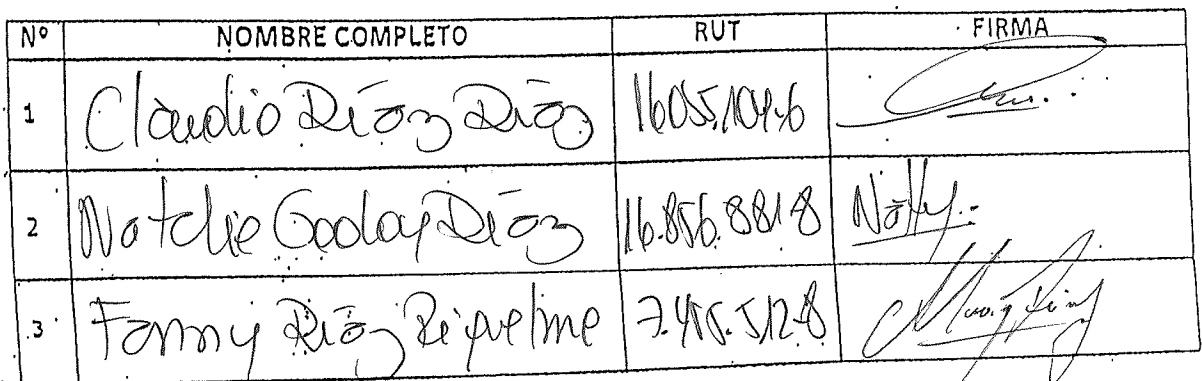 Nº NOMBRE COMPLETO RUT FIRMA
1 Claudio Díaz Díaz 16.055.104-6
2 Natalie Godoy Díaz 16.856.881-8 Natty
3 Fanny Díaz Riquelme 7.455.512-8